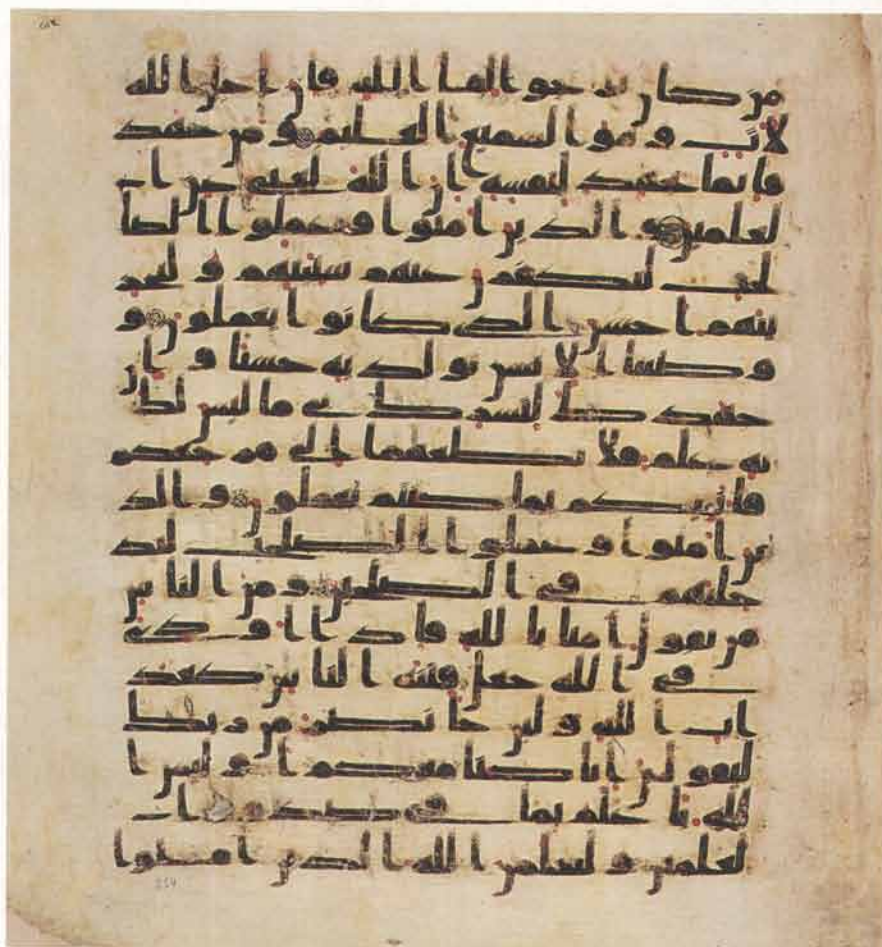 من كان يرجوا لقا الله فان اجل الله
لات و هو السميع العليم و من جهد
فانما يجهد لنفسه ان الله لغني عن ا
لعلمين و الذين امنوا و عملوا الصا
لحت لنكفرن عنهم سيتهم و لنجز
ينهم احسن الذي كانوا يعملون و
وصينا الانسن بولديه حسنا و ان
جهدك لتشرك بي ما ليس لك
به علم فلا تطعهما الي مرجعكم
فانبيكم بما كنتم تعملون و الذ
ين امنوا و عملوا الصلحت لند
خلنهم في الصلحين و من الناس
من يقول امنا بالله فاذا اوذي
في الله جعل فتنة الناس كعذ
اب الله و لين جا نصر من ربك
ليقولن انا كنا معكم او ليس ا
لله باعلم بما في صدور ا
لعلمين و ليعلمن الله الذين امنوا